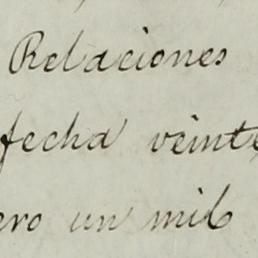 Relaciones
fecha veinte
ero un mil